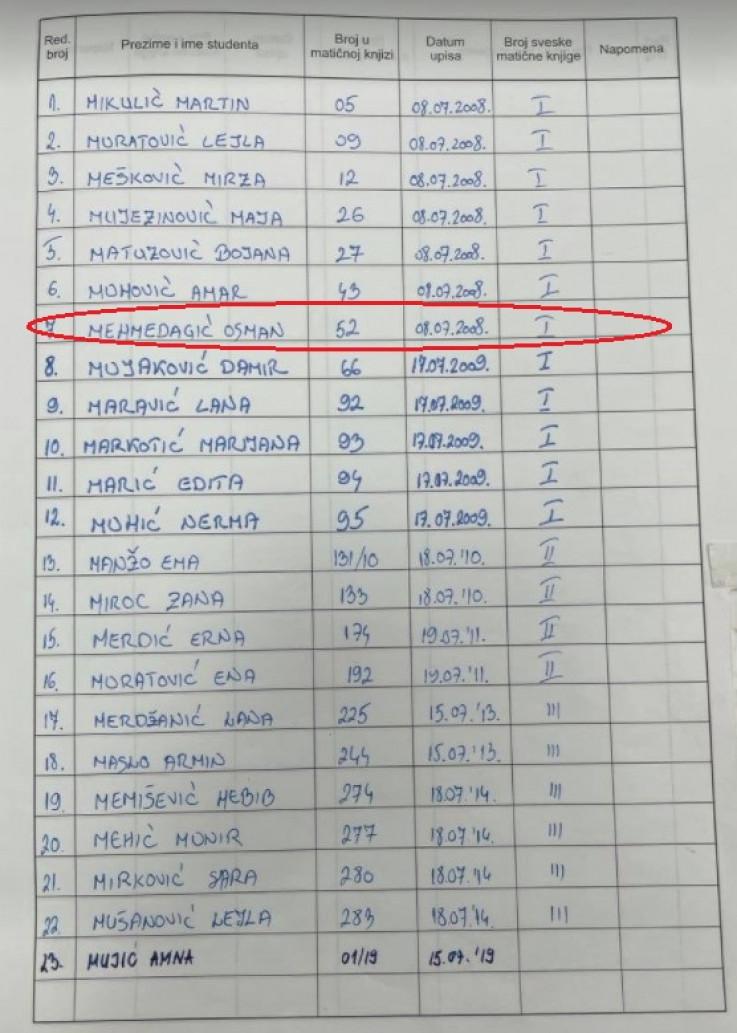 Red. broj Prezime i ime studenta Broj u matičnoj knjizi Datum upisa Broj sveske matične knjige Napomena
1. MIKULIĆ MARTIN 05 08.07.2008. I
2. MURATOVIĆ LEJLA 09 08.07.2008. I
3. MEŠKOVIĆ MIRZA 12 08.07.2008. I
4. MUJEZINOVIĆ MAJA 26 08.07.2008. I
5. MATUZOVIĆ BOJANA 27 08.07.2008. I
6. MUHOVIĆ AMAR 43 08.07.2008. I
7. MEHMEDAGIĆ OSMAN 52 08.07.2008. I
8. MUJAKOVIĆ DAMIR 66 17.07.2009. I
9. MARAVIĆ LANA 92 17.07.2009. I
10. MARKOTIĆ MARIJANA 93 17.07.2009. I
11. MARIĆ EDITA 94 17.07.2009. I
12. MUHIĆ NERMA 95 17.07.2009. I
13. MANŽO EMA 131/10 18.07.'10. II
14. MIROC ZANA 133 18.07.'10. II
15. MERDIĆ ERNA 174 19.07.'11. II
16. MURATOVIĆ ENA 192 19.07.'11. II
17. MERDŽANIĆ LANA 225 15.07.'13. III
18. MASLO ARMIN 244 15.07.'13. III
19. MEMIŠEVIĆ HEBIB 274 18.07.'14. III
20. MEHIĆ MUNIR 277 18.07.'14. III
21. MIRKOVIĆ SARA 280 18.07.'14 III
22. MUŠANOVIĆ LEJLA 283 18.07.'14. III
23. MUJIĆ AMNA 01/19 15.07.'19